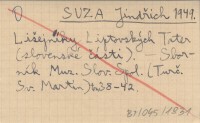 O SUZA Jindřich 1941.
Lišejníky Liptovských Tater
(slovenské části). Sbor-
ník Muz. Slov. Spol. (Turč.
Sv. Martin) 38-42.
87/045/1831